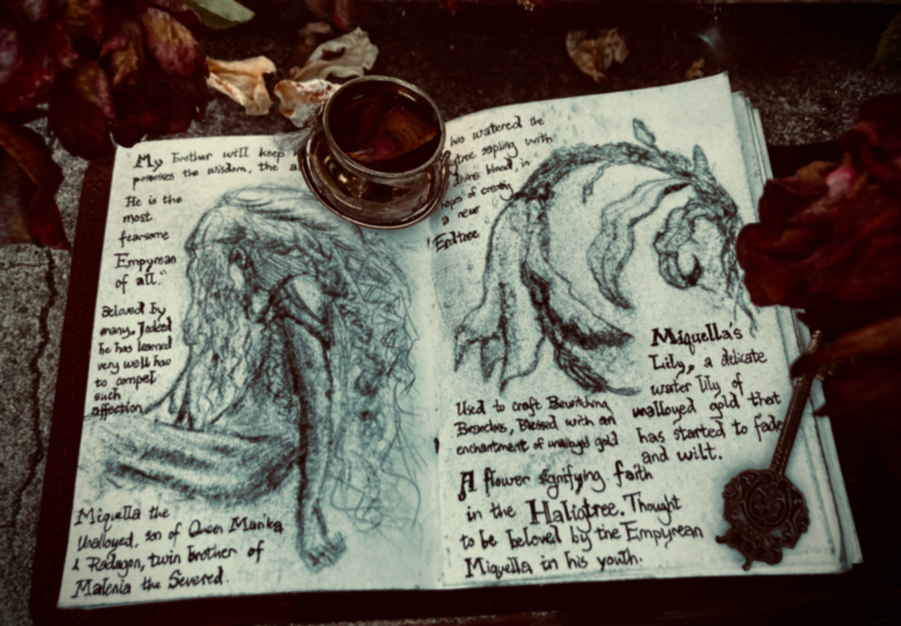 My brother will keep
possesses the wisdom, the
He is the
most
fearsome
Empyrean
of all."
Beloved by
many, Indeed
he has learned
very well how
to compel
such
affection
Miquella the
Unalloyed, son of Queen Marika
& Radagon, twin brother of
Malenia the Severed.
has watered the
sapling with
divine blood, in
hopes of creating
a new
Erdtree
Miquella's
Lily, a delicate
water lily of
unalloyed gold that
has started to fade
and wilt.
Used to craft Bewitching
Branches, Blessed with an
enchantment of unalloyed gold
A flower signifying faith
in the Haligtree. Thought
to be beloved by the Empyrean
Miquella in his youth.